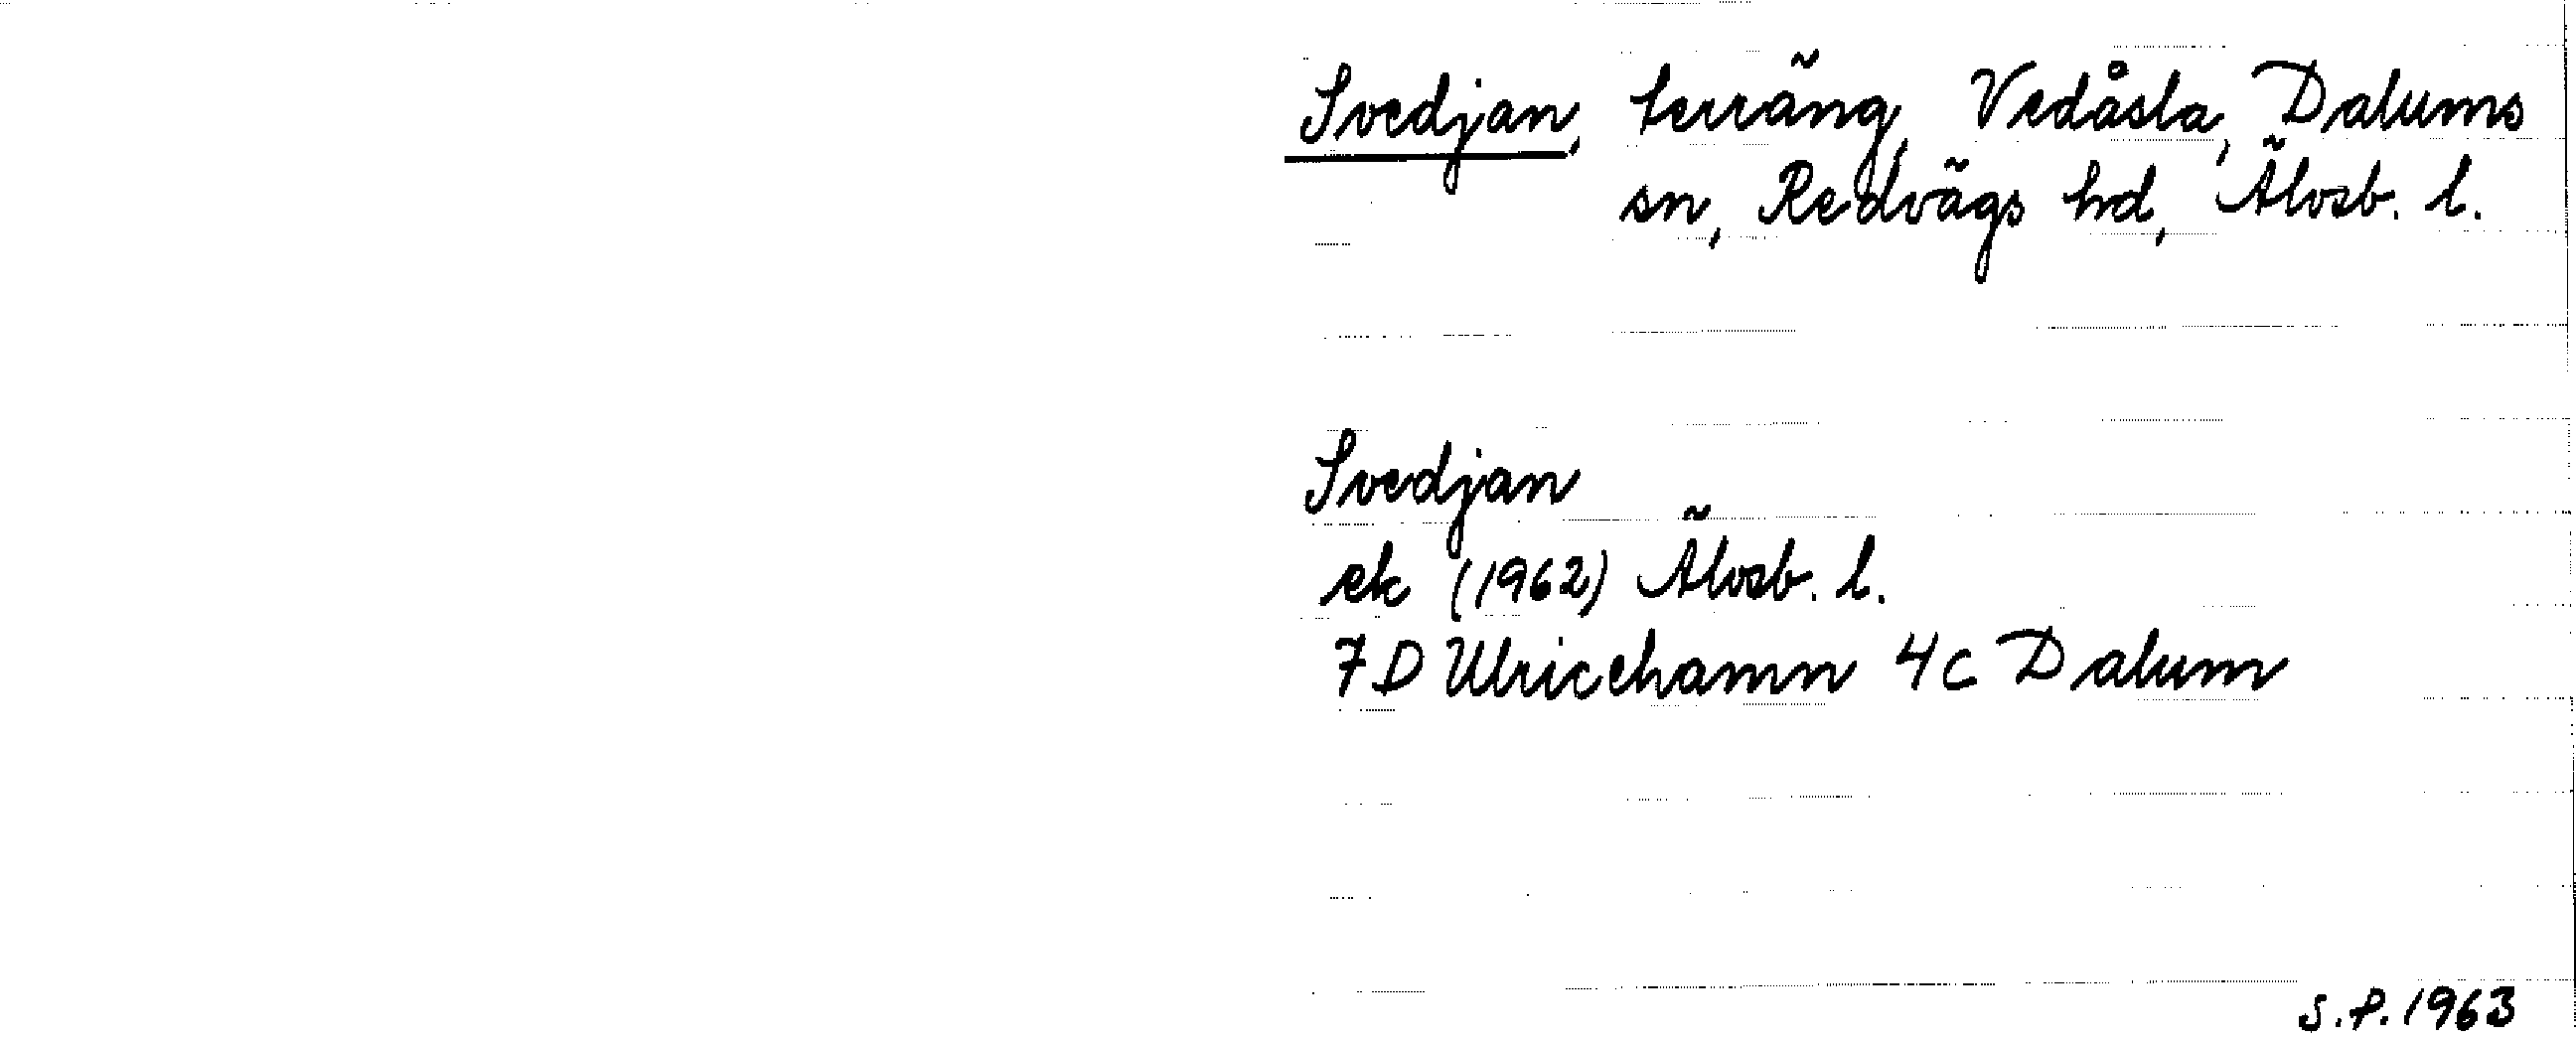 Svedjan, terräng, Vedåsla, Dalums
sn, Redvägs hd, Älvsb. l.
Svedjan
ek (1962) Älvsb. l.
7D Ulricehamn 4c Dalum
S.P. 1963